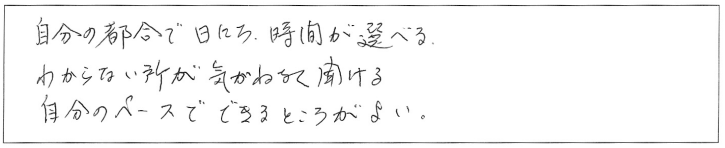 自分の都合で日にち、時間が選べる、
わからない所が気がねなく聞ける
自分のペースでできるところがよい。